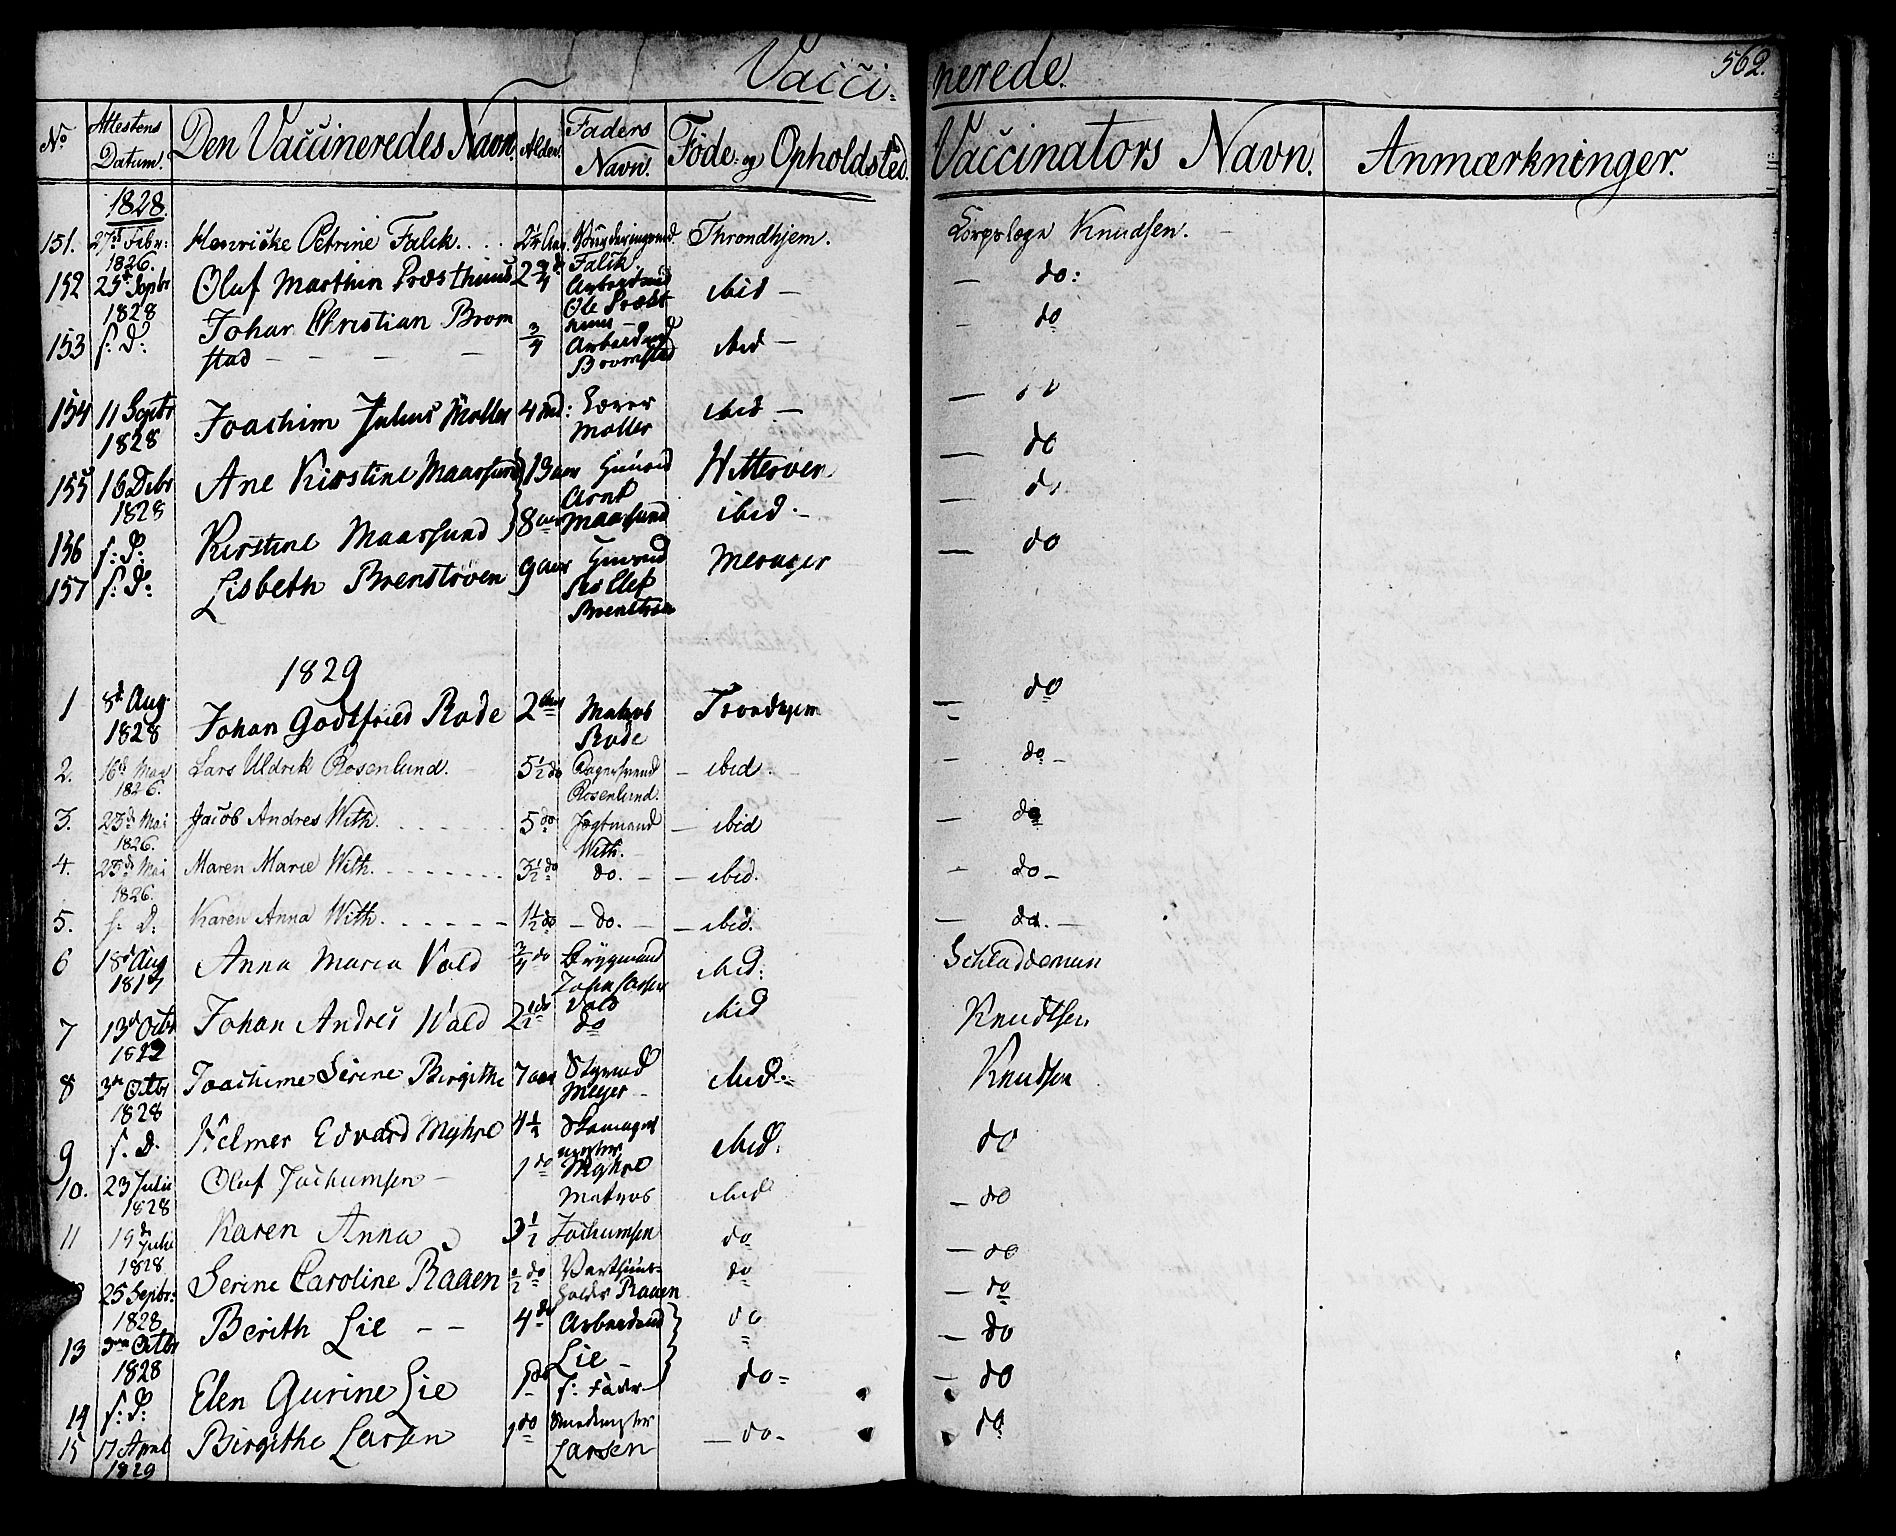 Vacci= nerede. 562.
No Attestens Datum. Den Vaccineredes Navn. Alder. Faders Navn. Føde- og Opholdsted. Vaccinators Navn. Anmærkninger.
1828.
151. 27d Febr: 1826. Henricke Petrine Falck. Falck Throndhjem. Corpslæge Knudsen.
152 25d Septbr 1828 Oluf Marthin Præsthuus Arbeidsmd Ole Præsthuus ibid — — do:
153 s: D: Johan Christian Bromstad — — — 3/4 Arbeidsmd Bromstad ibid — — do
154 11 Septbr 1828 Joachim Julius Møller 4 Md: Møller ibid —
155 16 Debr 1828 Ane Kirstine Maarsund 13 aar Huusmd Arnt Maarsund Hitterøen — do
156 s: D: Kirstine Maarsund 8 aar ibid — — do
157 s: D: Lisbeth Brenstrøven 9 aar Huusmd Brenstrøen Merager — do
1829
1 8d Aug 1828 Johan Godtfried Rode 2 Aar Matros Rode Trondhjem — do
2. 16d Mai 1826. Lars Uldrik Rosenlund. 5½ do Rosenlund. — ibid. — do —
3. 23d Mai 1826. Jacob Andres With. 5 do Jægtmand With. — ibid — do
4. 23d Mai 1826. Maren Marie With. 3½ do do. — — ibid. — do —
5. s. D: Karen Anna With. 1½ do — do. — — ibid. — do. —
6 18d Aug 1817 Anna Maria Vold 3/4 do Brygmand Vold ibid: Schladdeman
7 13d Octbr 1822 Johan Andres Vold 2½ do do ibid Knudtsen
8 3de Octbr 1828 Joachime Serine Birgithe 7 aar Meyer ibid. Knudsen
9 s. D. Helmer Edvard Myhre 4½ Skomagermester Myhre ibid. do
10. 23 Julii 1828 Oluf Jochumsen — 1 do Matros Jochumsen ibid — do
11 19de Julii 1828 Karen Anna 3½ do — do
25 Septbr: 1828 Serine Caroline Raaen do Raaen do — do
13 3de Octbr 1828 Berith Lie — — 4 do Arbeidsmd Lie — do — do
14 s: D: Elen Gurine Lie 1 do s: Fader do = — do
15 17 April 1829 Birgithe Larsen 1 do Smedmester Larsen — do - do